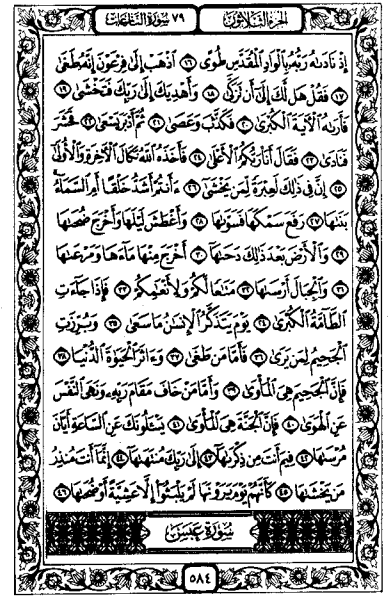 الجزء الثلاثون ٧٩ سورة النازعات
إِذْ نَادَىٰهُ رَبُّهُۥ بِٱلْوَادِ ٱلْمُقَدَّسِ طُوًى ١٦ ٱذْهَبْ إِلَىٰ فِرْعَوْنَ إِنَّهُۥ طَغَىٰ
١٧ فَقُلْ هَل لَّكَ إِلَىٰٓ أَن تَزَكَّىٰ ١٨ وَأَهْدِيَكَ إِلَىٰ رَبِّكَ فَتَخْشَىٰ ١٩
فَأَرَىٰهُ ٱلْـَٔايَةَ ٱلْكُبْرَىٰ ٢٠ فَكَذَّبَ وَعَصَىٰ ٢١ ثُمَّ أَدْبَرَ يَسْعَىٰ ٢٢ فَحَشَرَ
فَنَادَىٰ ٢٣ فَقَالَ أَنَا۠ رَبُّكُمُ ٱلْأَعْلَىٰ ٢٤ فَأَخَذَهُ ٱللَّهُ نَكَالَ ٱلْـَٔاخِرَةِ وَٱلْأُولَىٰٓ
٢٥ إِنَّ فِى ذَٰلِكَ لَعِبْرَةً لِّمَن يَخْشَىٰٓ ٢٦ ءَأَنتُمْ أَشَدُّ خَلْقًا أَمِ ٱلسَّمَآءُ
بَنَىٰهَا ٢٧ رَفَعَ سَمْكَهَا فَسَوَّىٰهَا ٢٨ وَأَغْطَشَ لَيْلَهَا وَأَخْرَجَ ضُحَىٰهَا
٢٩ وَٱلْأَرْضَ بَعْدَ ذَٰلِكَ دَحَىٰهَآ ٣٠ أَخْرَجَ مِنْهَا مَآءَهَا وَمَرْعَىٰهَا
٣١ وَٱلْجِبَالَ أَرْسَىٰهَا ٣٢ مَتَٰعًا لَّكُمْ وَلِأَنْعَٰمِكُمْ ٣٣ فَإِذَا جَآءَتِ
ٱلطَّآمَّةُ ٱلْكُبْرَىٰ ٣٤ يَوْمَ يَتَذَكَّرُ ٱلْإِنسَٰنُ مَا سَعَىٰ ٣٥ وَبُرِّزَتِ
ٱلْجَحِيمُ لِمَن يَرَىٰ ٣٦ فَأَمَّا مَن طَغَىٰ ٣٧ وَءَاثَرَ ٱلْحَيَوٰةَ ٱلدُّنْيَا ٣٨
فَإِنَّ ٱلْجَحِيمَ هِىَ ٱلْمَأْوَىٰ ٣٩ وَأَمَّا مَنْ خَافَ مَقَامَ رَبِّهِۦ وَنَهَى ٱلنَّفْسَ
عَنِ ٱلْهَوَىٰ ٤٠ فَإِنَّ ٱلْجَنَّةَ هِىَ ٱلْمَأْوَىٰ ٤١ يَسْـَٔلُونَكَ عَنِ ٱلسَّاعَةِ أَيَّانَ
مُرْسَىٰهَا ٤٢ فِيمَ أَنتَ مِن ذِكْرَىٰهَآ ٤٣ إِلَىٰ رَبِّكَ مُنتَهَىٰهَآ ٤٤ إِنَّمَآ أَنتَ مُنذِرُ
مَن يَخْشَىٰهَا ٤٥ كَأَنَّهُمْ يَوْمَ يَرَوْنَهَا لَمْ يَلْبَثُوٓا۟ إِلَّا عَشِيَّةً أَوْ ضُحَىٰهَا ٤٦
سورة عبس
٥٨٤